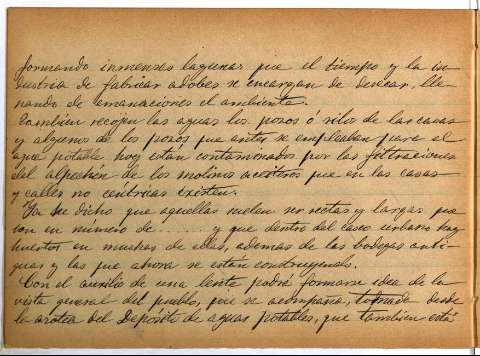 formando inmensas lagunas que el tiempo y la in-
dustria de fabricar adobes se encargan de desecar, lle-
nando de emanaciones el ambiente.
Tambien recogen las aguas los pozos ó silos de las casas
y algunos de los pozos que antes se empleaban para el
agua potable, hoy estan contaminados por las filtraciones
del alpechin de los molinos aceiteros que en las casas
y calles no centricas existen.
Ya se dicho que aquellas suelen ser rectas y largas que
son en numero de ...... y que dentro del casco urbano hay
huertos en muchas de ellas, ademas de las bodegas anti-
guas y las que ahora se están construyendo.
Con el auxilio de una lente podrá formarse idea de la
vista general del pueblo, que se acompaña, tomada desde
la azotea del Depósito de aguas potables, que tambien está